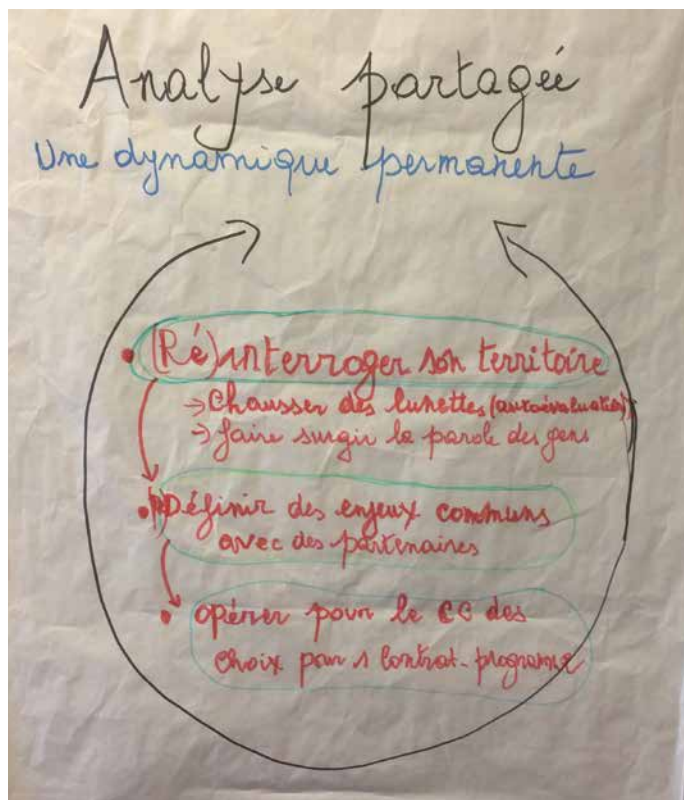 Analyse partagée
Une dynamique permanente
• (Ré)interroger son territoire
→ Chausser des lunettes (autoévaluation)
→ faire surgir la parole des gens
• Définir des enjeux communs
avec des partenaires
• opérer pour le CC des
choix pour 1 contrat-programme